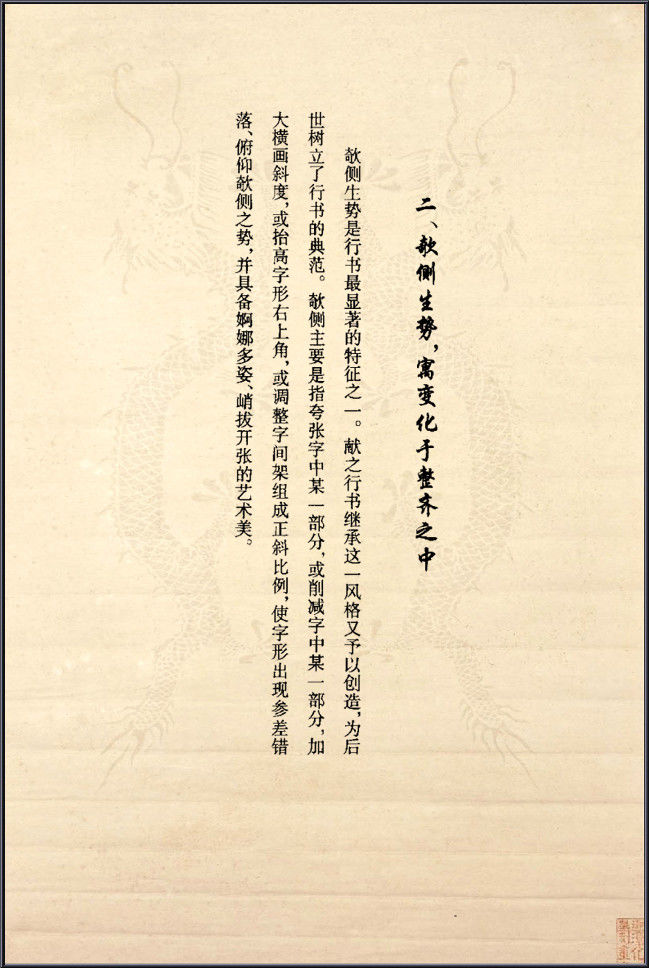 二、欹侧生势，寓变化于整齐之中
欹侧生势是行书最显著的特征之一。献之行书继承这一风格又予以创造，为后
世树立了行书的典范。欹侧主要是指夸张字中某一部分，或削减字中某一部分，加
大横画斜度，或抬高字形右上角，或调整字间架组成正斜比例，使字形出现参差错
落、俯仰欹侧之势，并具备婀娜多姿、峭拔开张的艺术美。